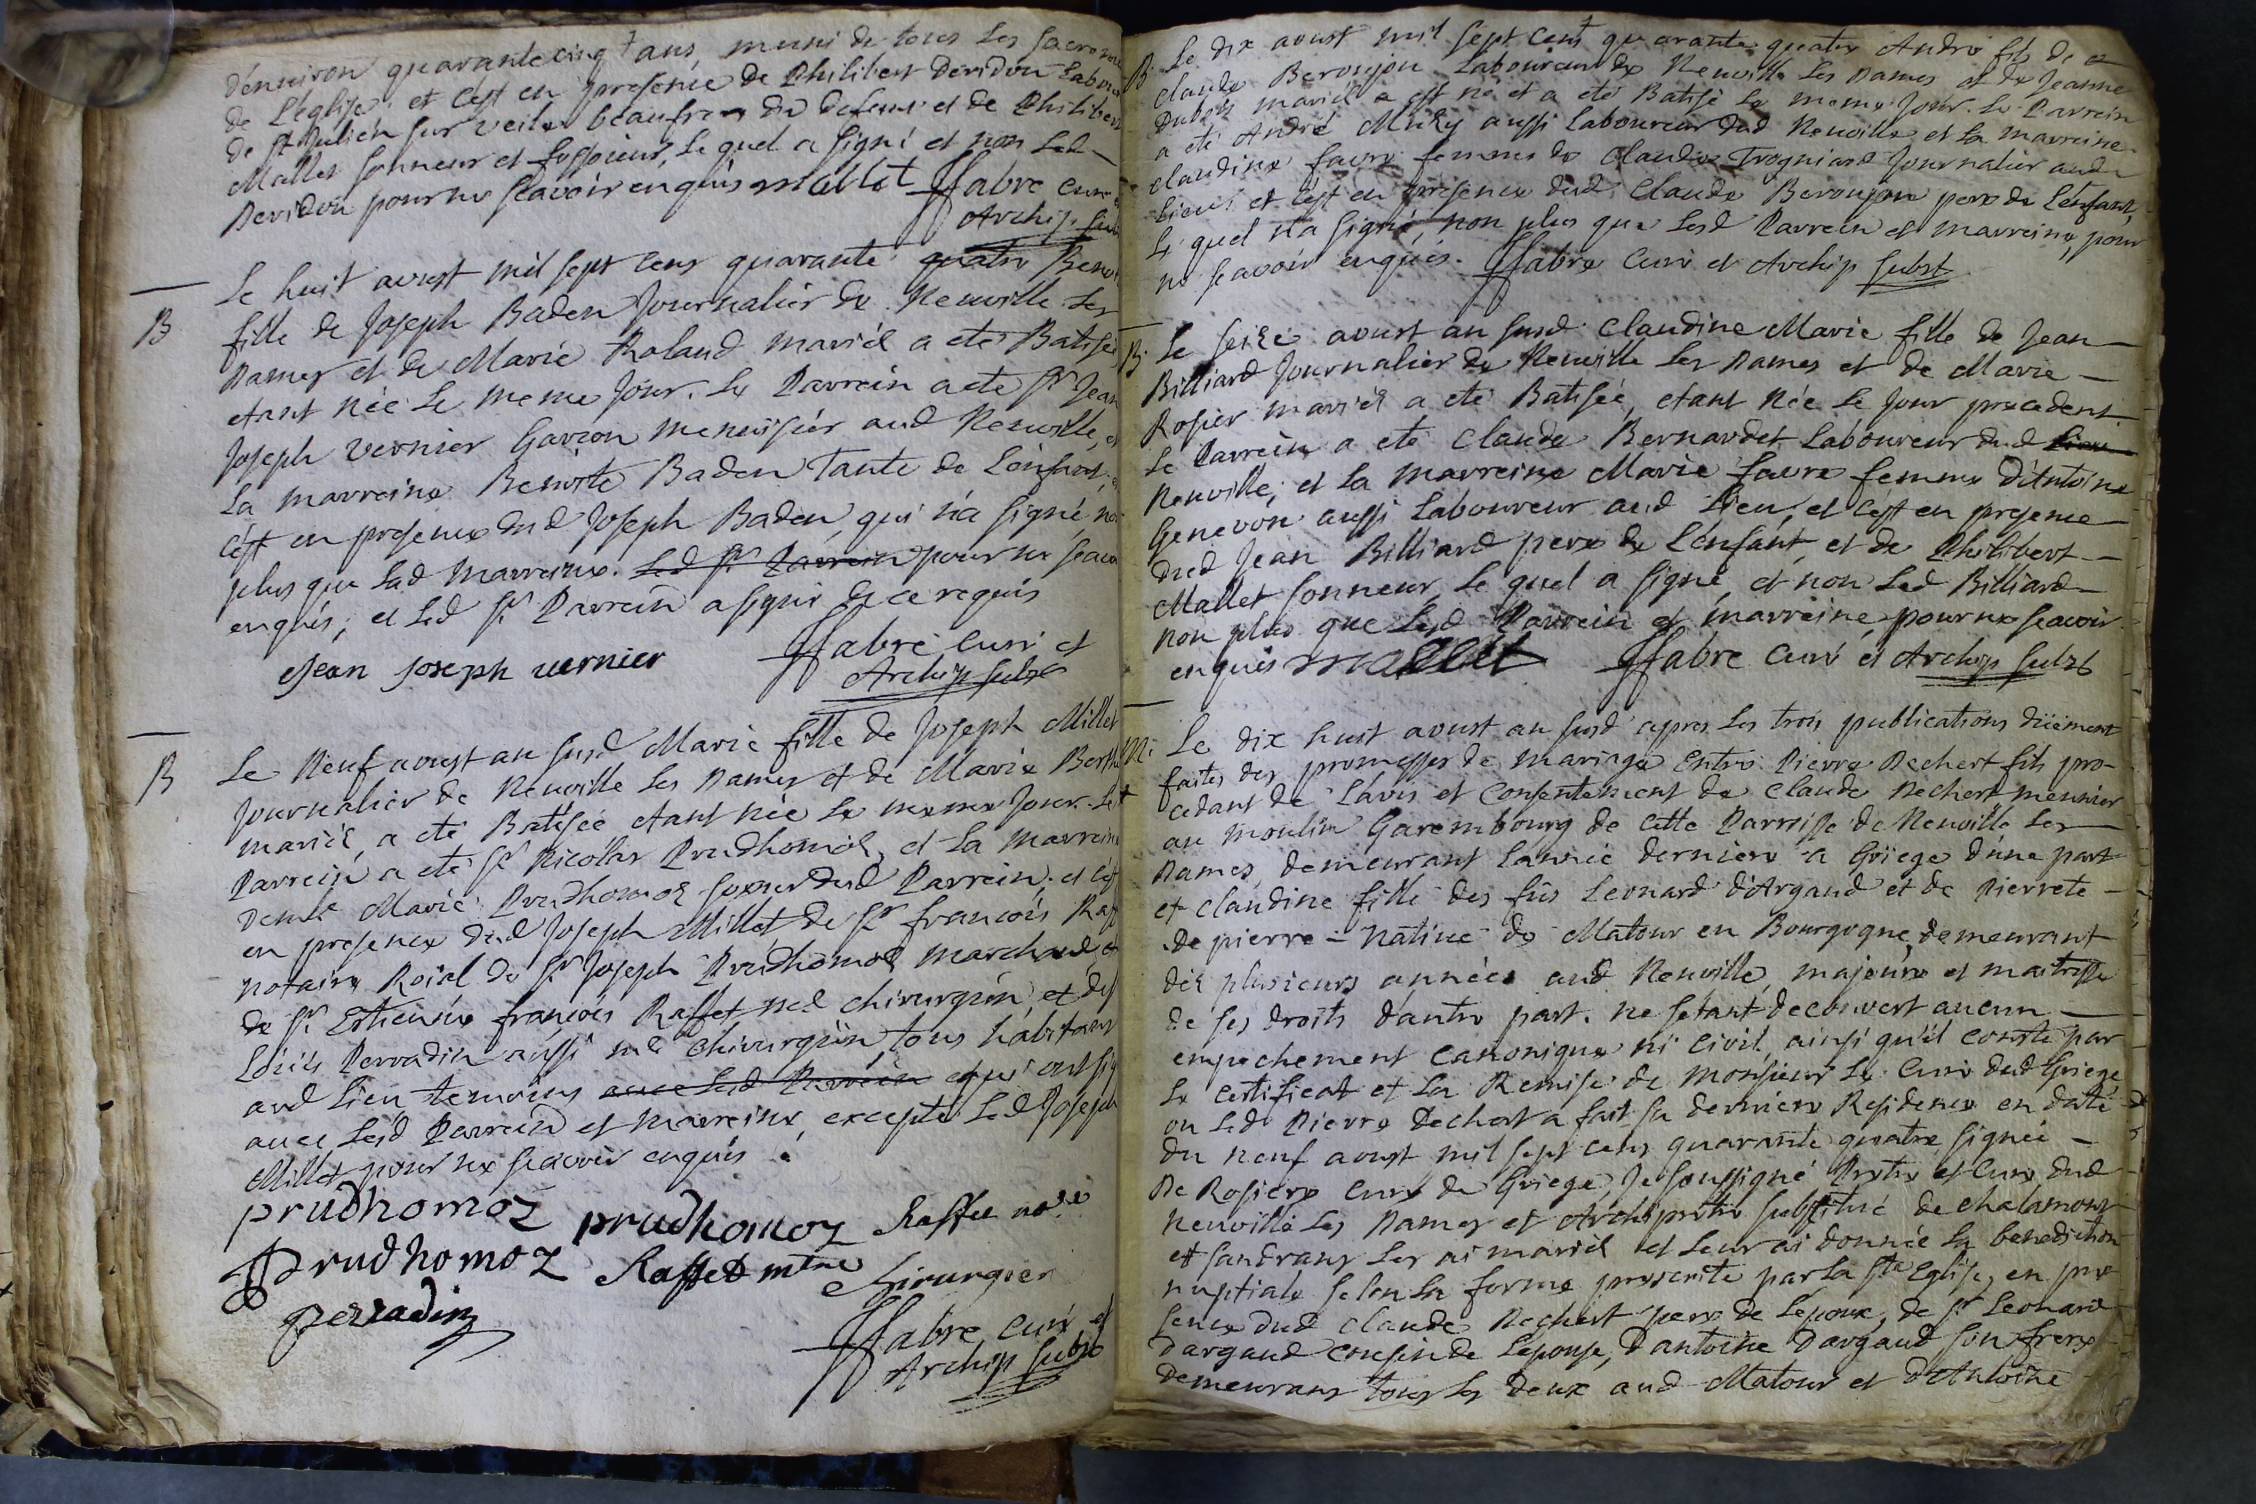 d'environ quarante cinq ans, muni de tous les sacrem
de l'eglise, et c'est en presence de Philibert Devidon Labour
de St Julien sur Veile beaufrere du defunt et de Philibert
Mallet sonneur et fossoieur, lequel a signé et non led
Devidon pour ne scavoir enquis mallet ffabre curé
Archip. sub
B
Le huit aoust mil sept cens quarante quatre Benoi
fille de Joseph Baden Journalier de Neuville Les
Dames et de Marie Roland mariéz a eté Batisée
etant née le meme jour. Le Parrein a eté Sr Jean
Joseph vernier Garcon menuisier aud Neuville, et
La marreine Benoite Baden Tante de L'enfant, et
c'est en presence dud Joseph Baden qui n'a signé, non
plus que lad marreine. Led Sr Parrein pour ne scavoi
enquis, et Led Sr Parrein a signé de ce requis
Jean joseph vernier ffabre curé et
Archip subst
B
Le neuf aoust an susd Marie fille de Joseph Millet
Journalier de Neuville Les Dames et de Marie Berth
mariéz, a eté Batisée etant née Le meme jour. Le
Parrein a eté Sr Nicolas Prudhomoz, et La marreine
Demlle Marie Prudhomoz soeur dud Parrein, et c'est
en presence dud Joseph Millet de Sr francois Raff
notaire Roial de Sr Joseph Prudhomoz marchand, et
de Sr Estienne francois Raffet me chirurgien et de
Loüis Perradin aussi me chirurgien tous habitans
aud Lieu temoins avec Lesd Parrein et qui ont sig
avec Lesd Parrein et Marreine, excepté Led Joseph
Millet pour ne scavoir enquis.
prudhomoz prudhomoz Raffet nore
Prudhomoz Raffet mtre chirurgien
perradin
ffabre curé et
Archip subst
B.
Le dix aoust mil sept cens quarante quatre André fils de
Claude Beroujon Laboureur de Neuville Les Dames et de Jeanne
Dubois mariéz est né et a eté Batisé Le meme jour. Le Parrein
a eté André aussi Laboureur dud Neuville et La marreine
Claudine favre femme de Claude Trogniard Journalier aud
Lieu; et c'est en presence dud Claude Beroujon pere de L'enfant,
Lequel n'a signé, non plus que Lesd Parrein et marreine, pour
ne scavoir enquis. ffabre Curé et Archip subst
B.
Le seize aoust an susd Claudine Marie fille de Jean
Billiard Journalier de Neuville Les Dames et de Marie
Rosier mariéz a eté Batisée, etant née Le jour precedent
Le Parrein a eté Claude Bernardet Laboureur dud Lieu
Neuville; et La marreine Marie favre femme d'Antoine
Genevon aussi Laboureur aud Lieu, et c'est en presence
dud Jean Billiard pere de L'enfant, et de Philibert
Mallet sonneur, Lequel a signé, et non Led Billiard
non plus que Lesd Parrein et marreine, pour ne scavoir
enquis mallet ffabre Curé et Archip subst
M.
Le dix huit aoust an susd apres Les trois publications düement
faites des promesses de mariage entre Pierre Dechert fils pro-
cedant de L'avis et consentement de Claude Dechert meunier
au moulin Garembourg de cette Parroisse de Neuville Les
Dames, demeurant L'année derniere a Griege d'une part
et Claudine fille des fûs Leonard d'Argaud et de Pierrete
de pierre - Native de Matour en Bourgogne, demeurant
dez plusieurs années aud Neuville, majeure et maitresse
de ses droits d'autre part. ne s'etant decouvert aucun
empechement canonique ni civil, ainsi qu'il conste par
Le certificat et La Remise de Monsieur Le Curé dud Griege
ou Led Pierre Dechert a fait sa derniere Residence en date
du neuf aoust mil sept cens quarante quatre signée
De Rosiere Curé de Griege, Je soussigné Prêtre et Curé dud
Neuville Les Dames et Archiprêtre substitué de chalamont
et sandrans Les ai mariéz et Leur ai donnée La benediction
nuptiale selon La forme prescrite par La Ste Eglise, en pre-
sence dud Claude Dechert pere de L'epoux, de Sr Leonard
Dargaud cousin de L'epouse, D'antoine Dargaud son frere
demeurans tous Les deux aud Matour et d'Antoine